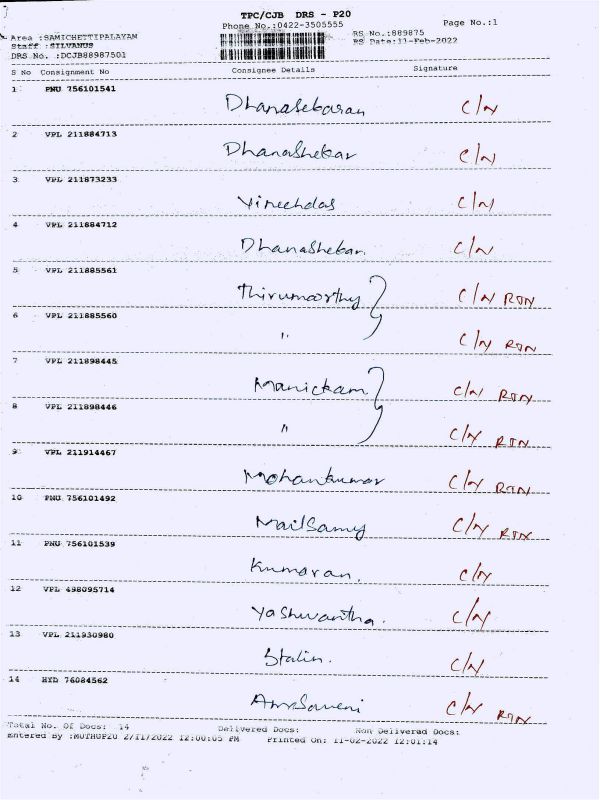 TPC/CJB DRS - P20
Phone No.:0422-3505555
Page No.:1
Area :SAMICHETTIPALAYAM
RS No.:889875
Staff :SILVANUS
RS Date:11-Feb-2022
DRS No. :DCJB88987501
S No Consignment No Consignee Details Signature
1 PNU 756101541
Dhanasekaran C/N
2 VPL 211884713
Dhanashekar C/N
3 VPL 211873233
Vineehdas C/N
4 VPL 211884712
Dhanashekar C/N
5 VPL 211885561
Thirumoorthy C/N RTN
6 VPL 211885560
" C/N RTN
7 VPL 211898445
Manickam C/N RTN
8 VPL 211898446
" C/N RTN
9 VPL 211914467
Mohankumar C/N RTN
10 PNU 756101492
Mailsamy C/N RTN
11 PNU 756101539
Kumaran. C/N
12 VPL 498095714
Yashwantha. C/N
13 VPL 211930980
Stalin. C/N
14 HYD 76084562
C/N RTN
Total No. Of Docs: 14 Delivered Docs: Non Delivered Docs:
Entered By :MUTHUP20 2/11/2022 12:00:05 PM Printed On: 11-02-2022 12:01:14